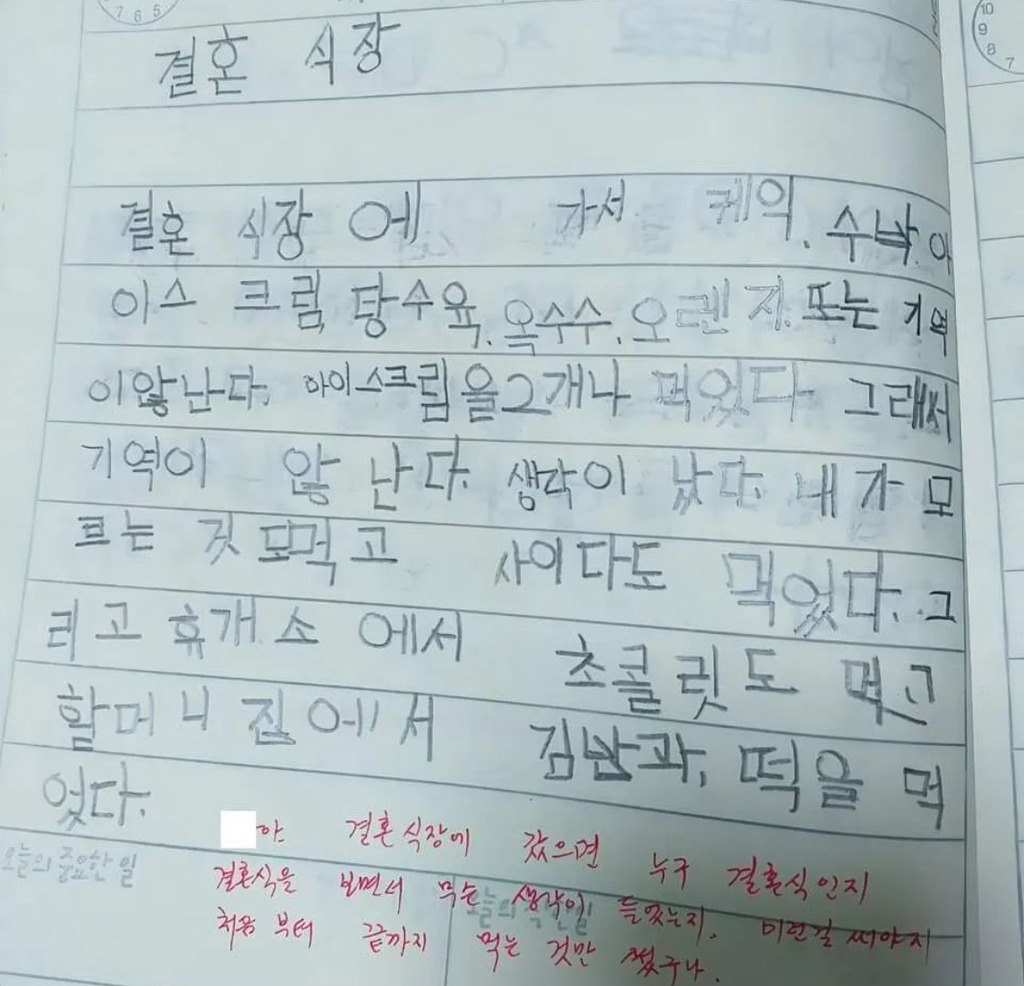 7 6 5
10
9
8
7
결혼 식장
결혼 식장에 가서 케익, 수박, 아
이스 크림, 탕수육, 옥수수, 오렌지, 또는 기역
이않난다. 아이스크림을2개나 먹었다. 그래서
기역이 않난다. 생각이 났다. 내가 모
르는 것 도먹고 사이다도 먹었다. 그
리고 휴개소에서 초콜릿도 먹고
할머니 집에서 김밥과, 떡을 먹
었다.
야 결혼식장에 갔으면 누구 결혼식인지
오늘의 중요한 일
결혼식을 보면서 무슨 생각이 들었는지, 이런걸 써야지
처음부터 끝까지 먹는 것만 썼구나.